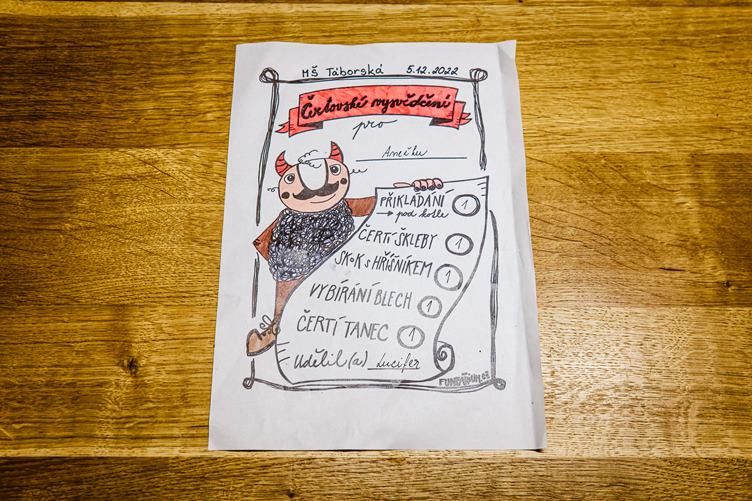 MŠ Táborská 5.12.2022
Čertovské vysvědčení
pro
Anežku
PŘIKLÁDÁNÍ 1
→ pod kotle
ČERTÍ ŠKLEBY 1
SKOK S HŘÍŠNÍKEM 1
VYBÍRÁNÍ BLECH 1
ČERTÍ TANEC 1
Udělil(a) Lucifer